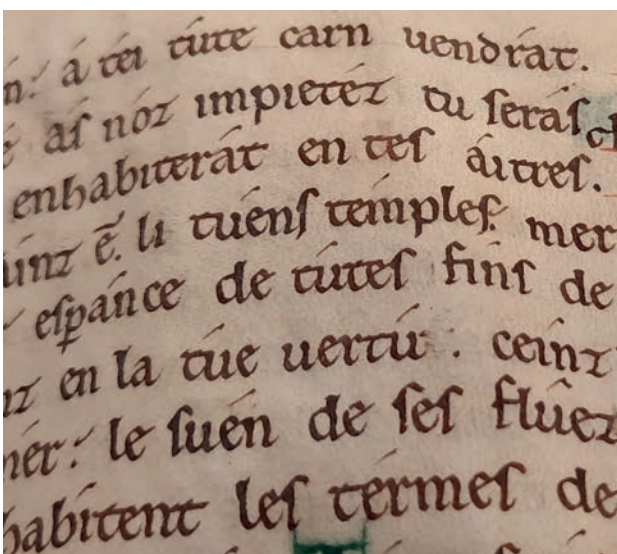 á téi túte carn uendrat.
aſ nóz impietéz tu ſeráſ
enhabiterát en teſ áitreſ.
ē. li tuenſ témpleſ. mer
eſꝑánce de tútes finſ de
en la túe uertú : ceinz
le ſuén de ſeſ flûez
habitent leſ térmeſ de